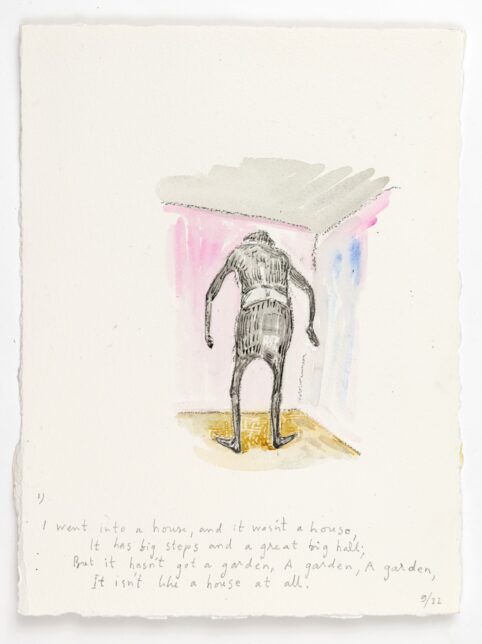 1)
I went into a house, and it wasn't a house,
It has big steps and a great big hall;
But it hasn't got a garden, A garden, A garden,
It isn't like a house at all.
9/22